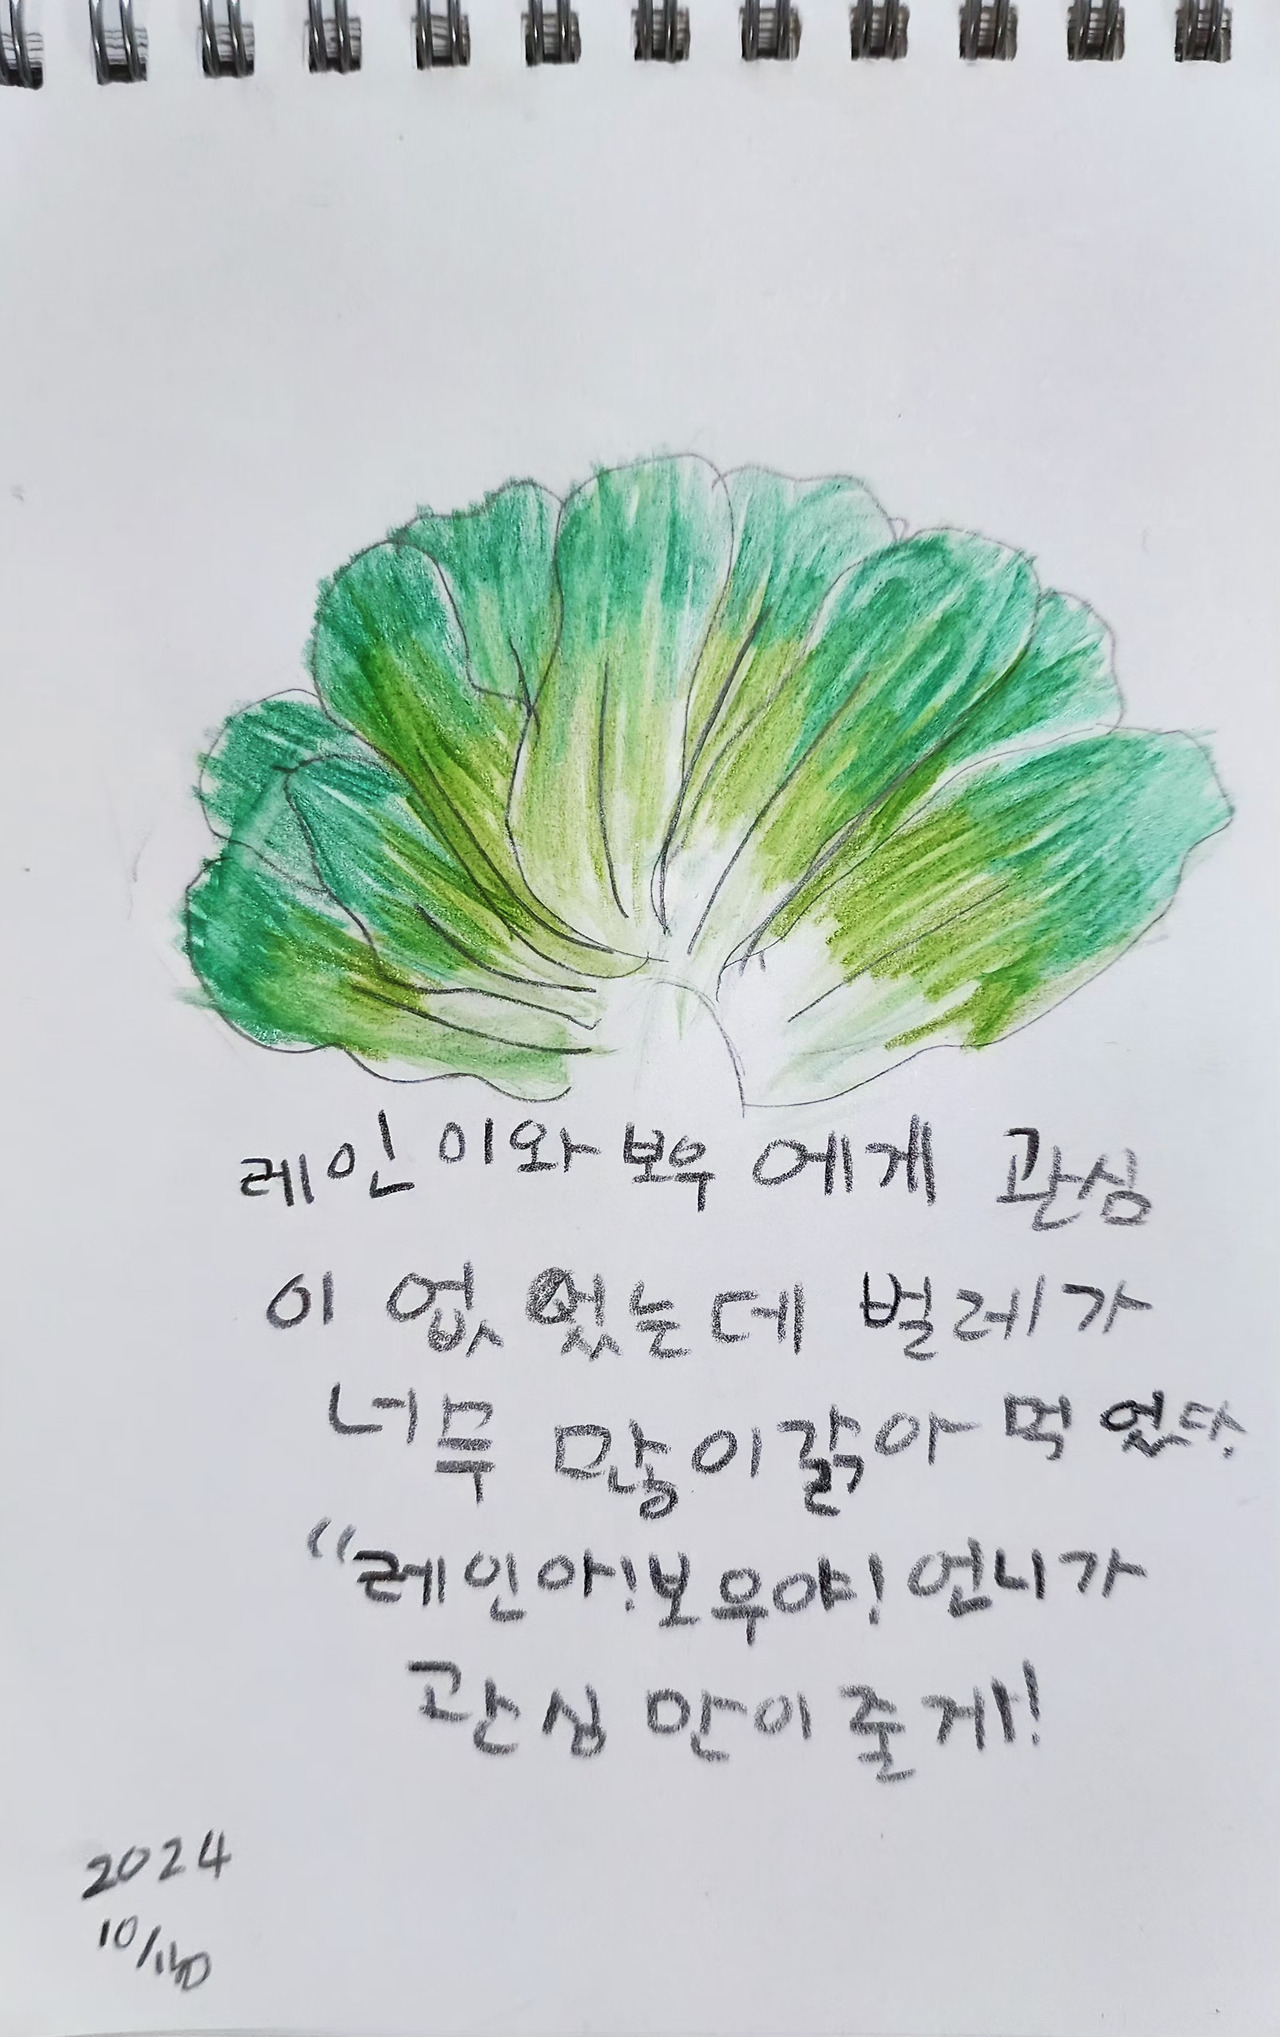 레인이와 보우에게 관심
이 없었는데 벌레가
너무 많이 갉아 먹었다.
"레인아! 보우야! 언니가
관심 많이 줄게!
2024
10/